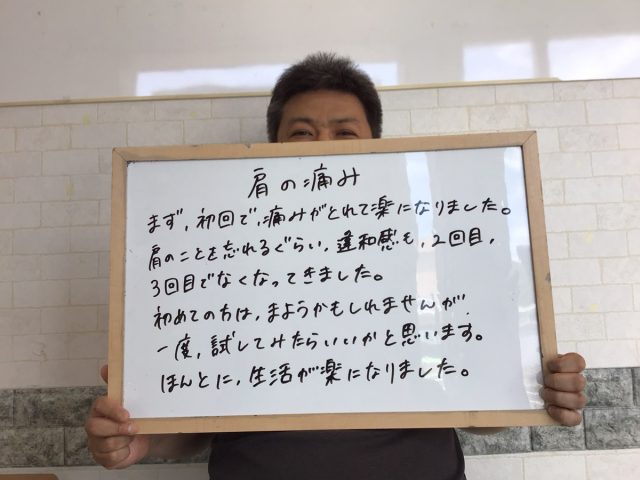 肩の痛み
まず,初回で,痛みがとれて楽になりました。
肩のことを忘れるぐらい,違和感も,2回目,
3回目でなくなってきました。
初めての方は,まようかもしれませんが,
一度,試してみたらいいかと思います。
ほんとに,生活が楽になりました。